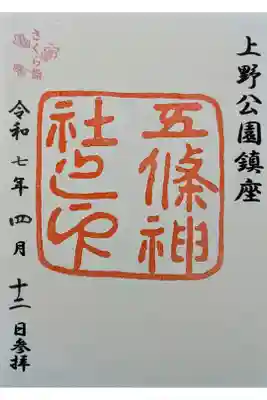 上野公園鎮座
五條神
社之印
令和七年四月十二日参拝
さくら詣